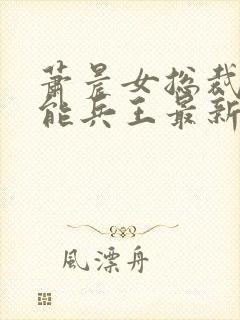 萧晨女总裁
能兵王最新
風漂舟